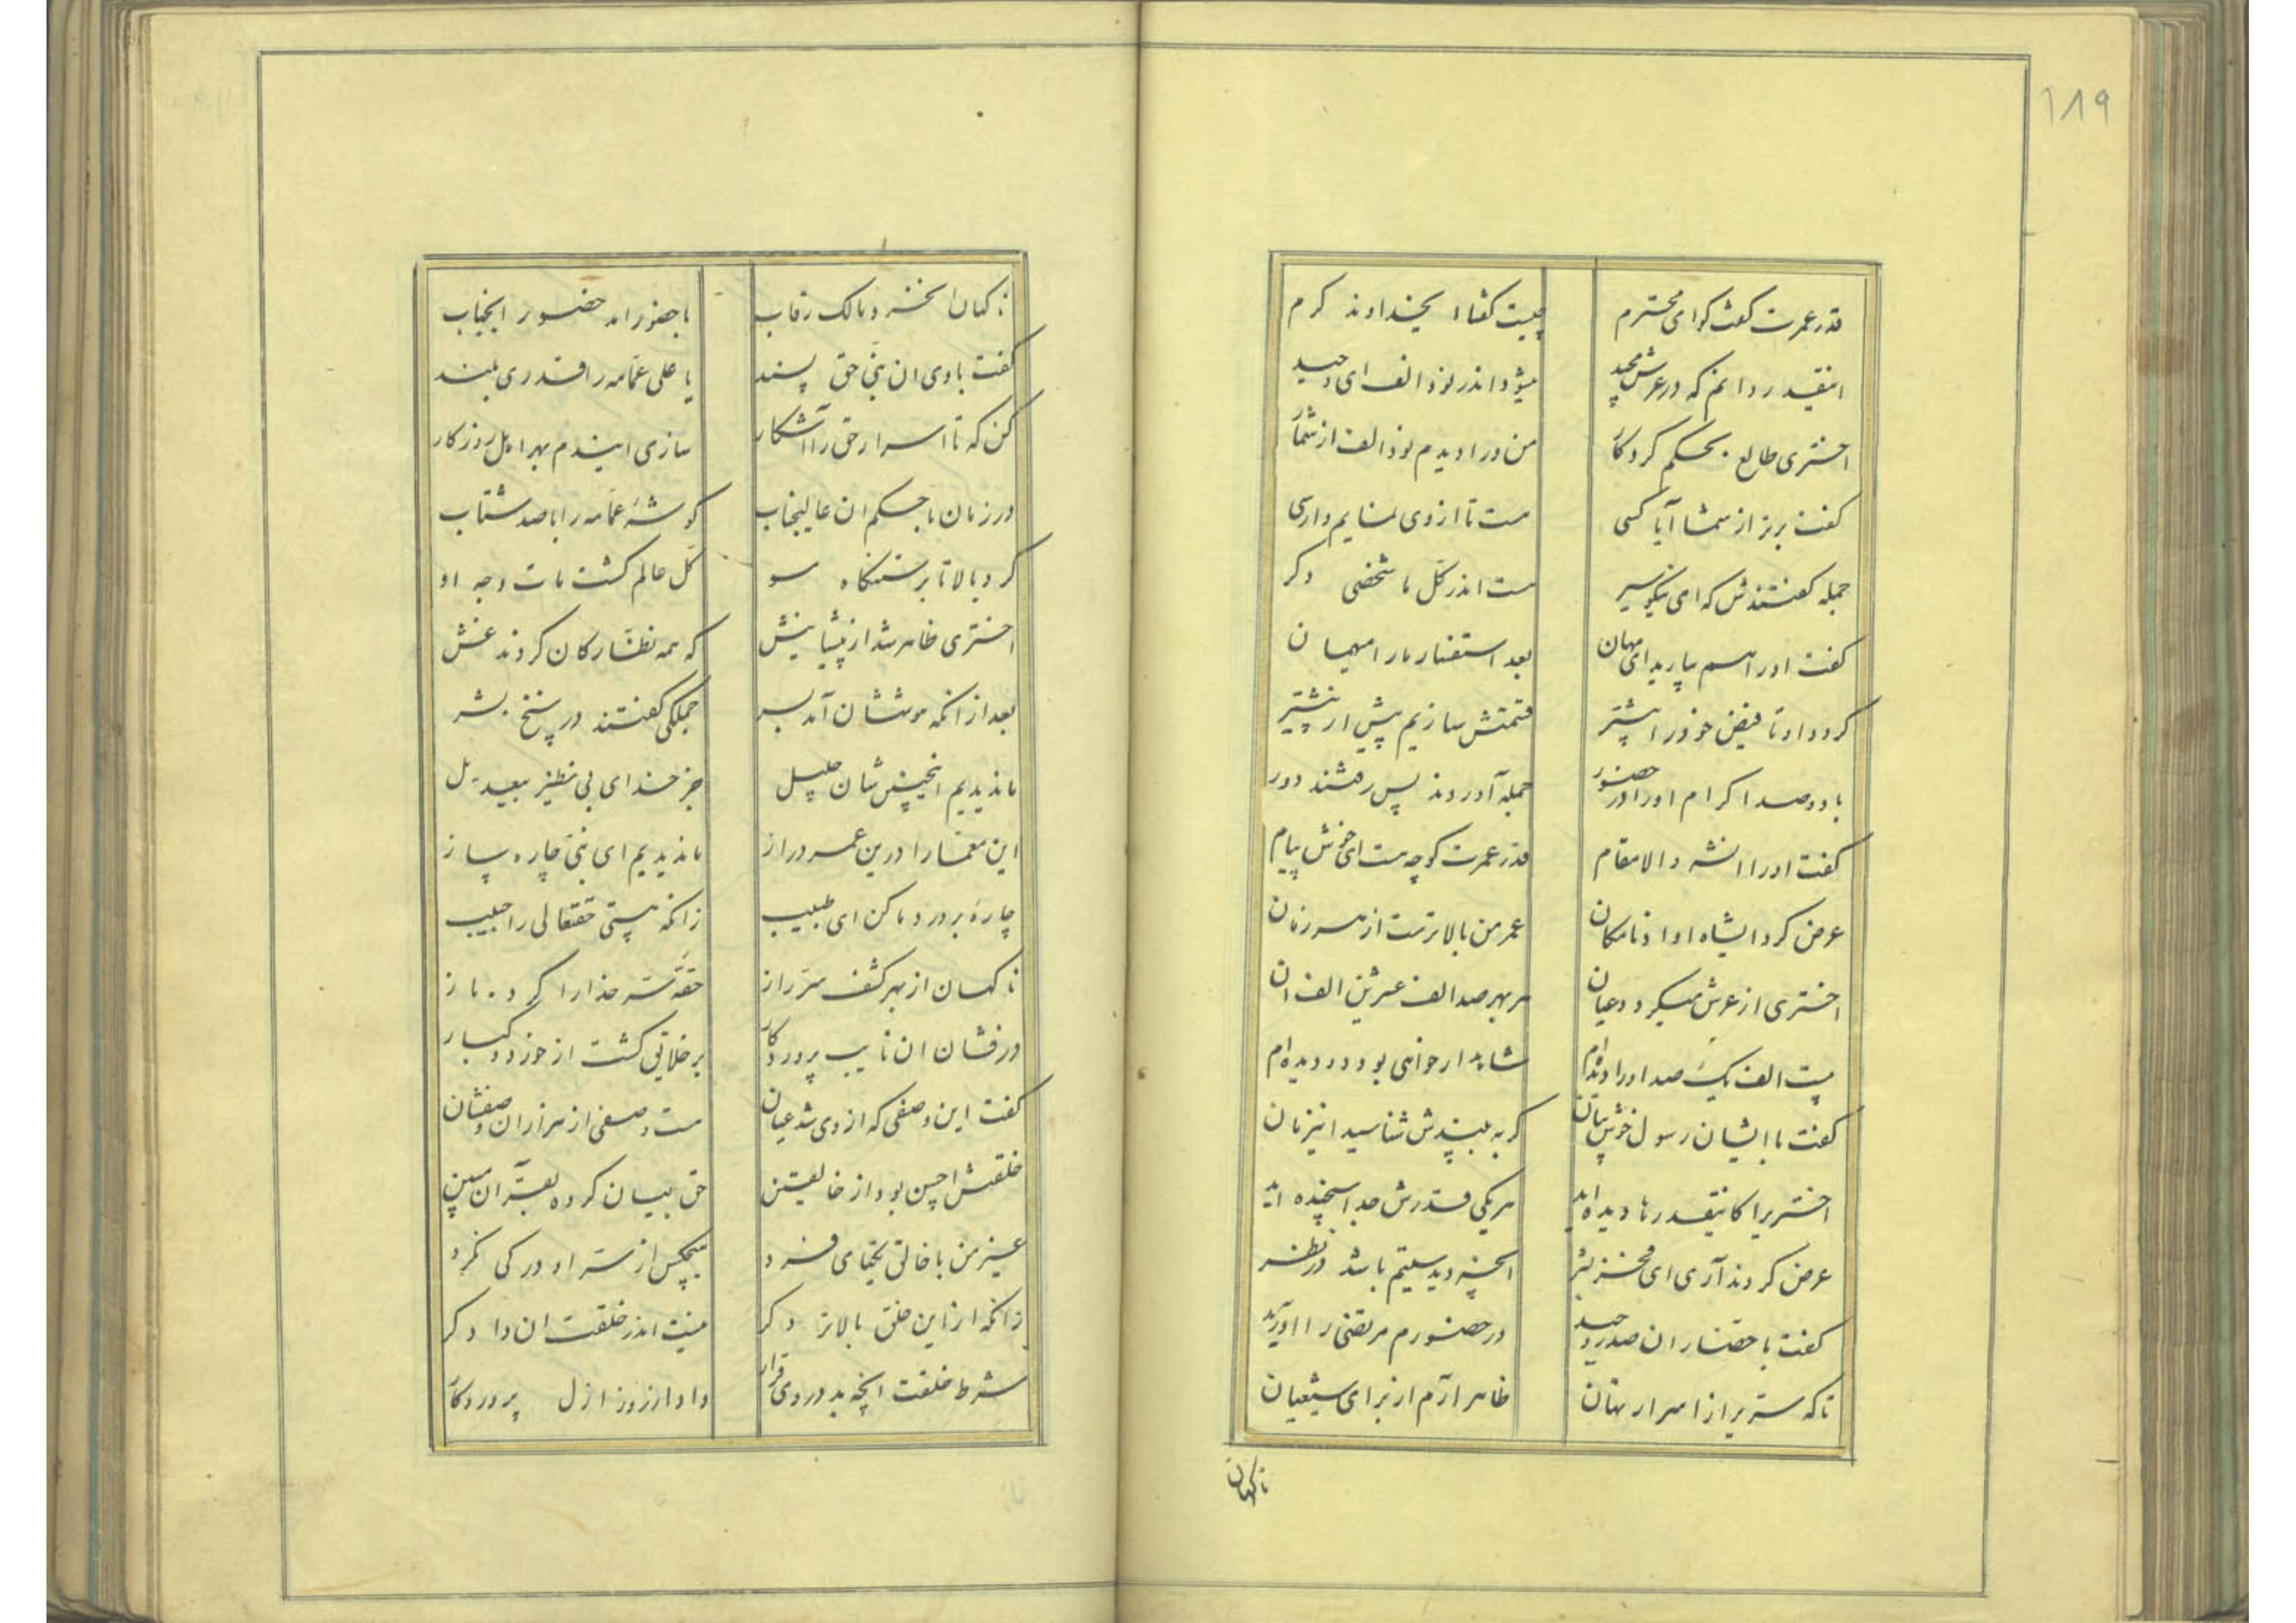 ۱۸۹
قدر عمرت گفت گو ای محترم چیست گفتا ایخداوند کرم
اینقدر دانم که در عرش مجید میشود اندر نود الف ای وحید
اختری طالع بحکم کردکار من ورا دیدم نود الف از شمار
گفت بر از شما آیا کسی هست تا از وی نمایم وارسی
جمله گفتندش که ای نیکو سیر هست اندر کل ما شخصی دگر
گفت او را اسم بیارید ای مهان بعد استفسار ما را میهمان
کرد داد تا فیض خود را بیشتر قسمتش سازیم پیش از پیشتر
با دو صد اکرام او را در حضور جمله آوردند پس رفتند دور
گفت او را انشه والا مقام قدر عمرت گو چه هست ای خوش پیام
عرض کرد ایشاه او ادنا مکان عمر من بالاترست از هر زمان
اختری از عرش میکرد عیان هر بهر صد الف عشرین الف ان
بیست الف یک صد او را دیده‌ام شاهد ار خواهی بود در دیده‌ام
گفت با ایشان رسول خوش بیان گر به بینیدش شناسید اینزمان
اختریرا کاینقدرها دیده‌اید هر یکی قدرش جدا سنجیده اید
عرض کردند آری ای فخر بشر انچه دیدیم باشد در نظر
گفت با حضار ان صدر وحید در حضورم مرتضی را آورید
تا که ستریرا از اسرار نهان ظاهر آرم از برای شیعیان
ناگهان
ناگهان انخسرو مالک رقاب با حضور امد حضور انجناب
گفت با وی ان نبی حق پسند یا علی عمامه را قدری بلند
کن که تا اسرار حق را آشکار سازی ایندم بهر اهل روزکار
در زمان با حکم ان عالیجناب گوشه عمامه را با صد شتاب
کرد بالا تا برستنگاه مو کل عالم گشت مات وجه او
اختری ظاهر شد از پیشانیش که همه نظارگان کردند غش
بعد از انکه هوششان آمد بسر جملگی گفتند در پاسخ بشر
ما ندیدیم اینچنین شان جلیل جز خدای بی نظیر بیعدیل
این معما را درین عمر دراز ما ندیدیم ای نبی چاره ساز
چاره بر درد ما کن ای طبیب زانکه هستی حقتعالی را حبیب
ناگهان از بهر کشف سر راز حقه سر خدا را کرد باز
درفشان ان نایب پروردگار بر خلایق گشت از خورد و کبار
گفت این وصفی که از وی شد عیان هست وصفی از هزاران وصفشان
خلقتش احسن بود از خالقین حق بیان کرده بقرآن مبین
غیر من با خالق یکتای فرد هیچکس از سر او درکی نکرد
زانکه از این خلق بالاتر دگر نیست اندر خلقت ان دادگر
شرط خلقت انچه بد در وی قرار داد از روز ازل پروردگار